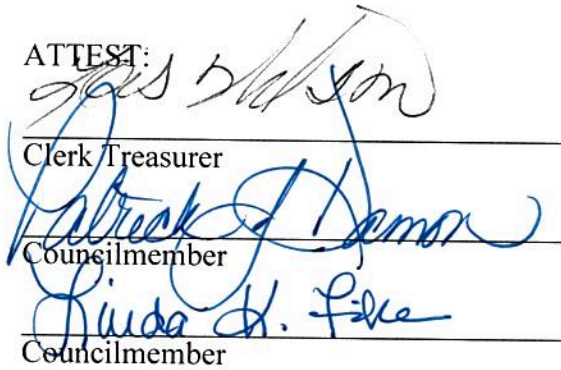 ATTEST:
Clerk Treasurer
Patrick J Damon
Councilmember
Linda K. Fike
Councilmember